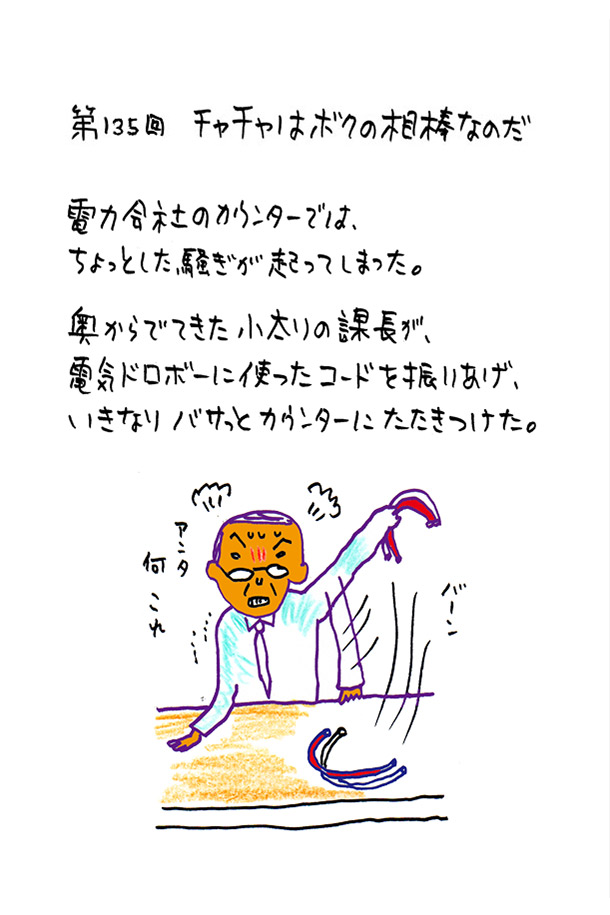 第135回 チャチャはボクの相棒なのだ
電力会社のカウンターでは、
ちょっとした騒ぎが起ってしまった。
奥からでてきた小太りの課長が、
電気ドロボーに使ったコードを振りあげ、
いきなりバサっとカウンターにたたきつけた。
アンタ
何これ
バーン